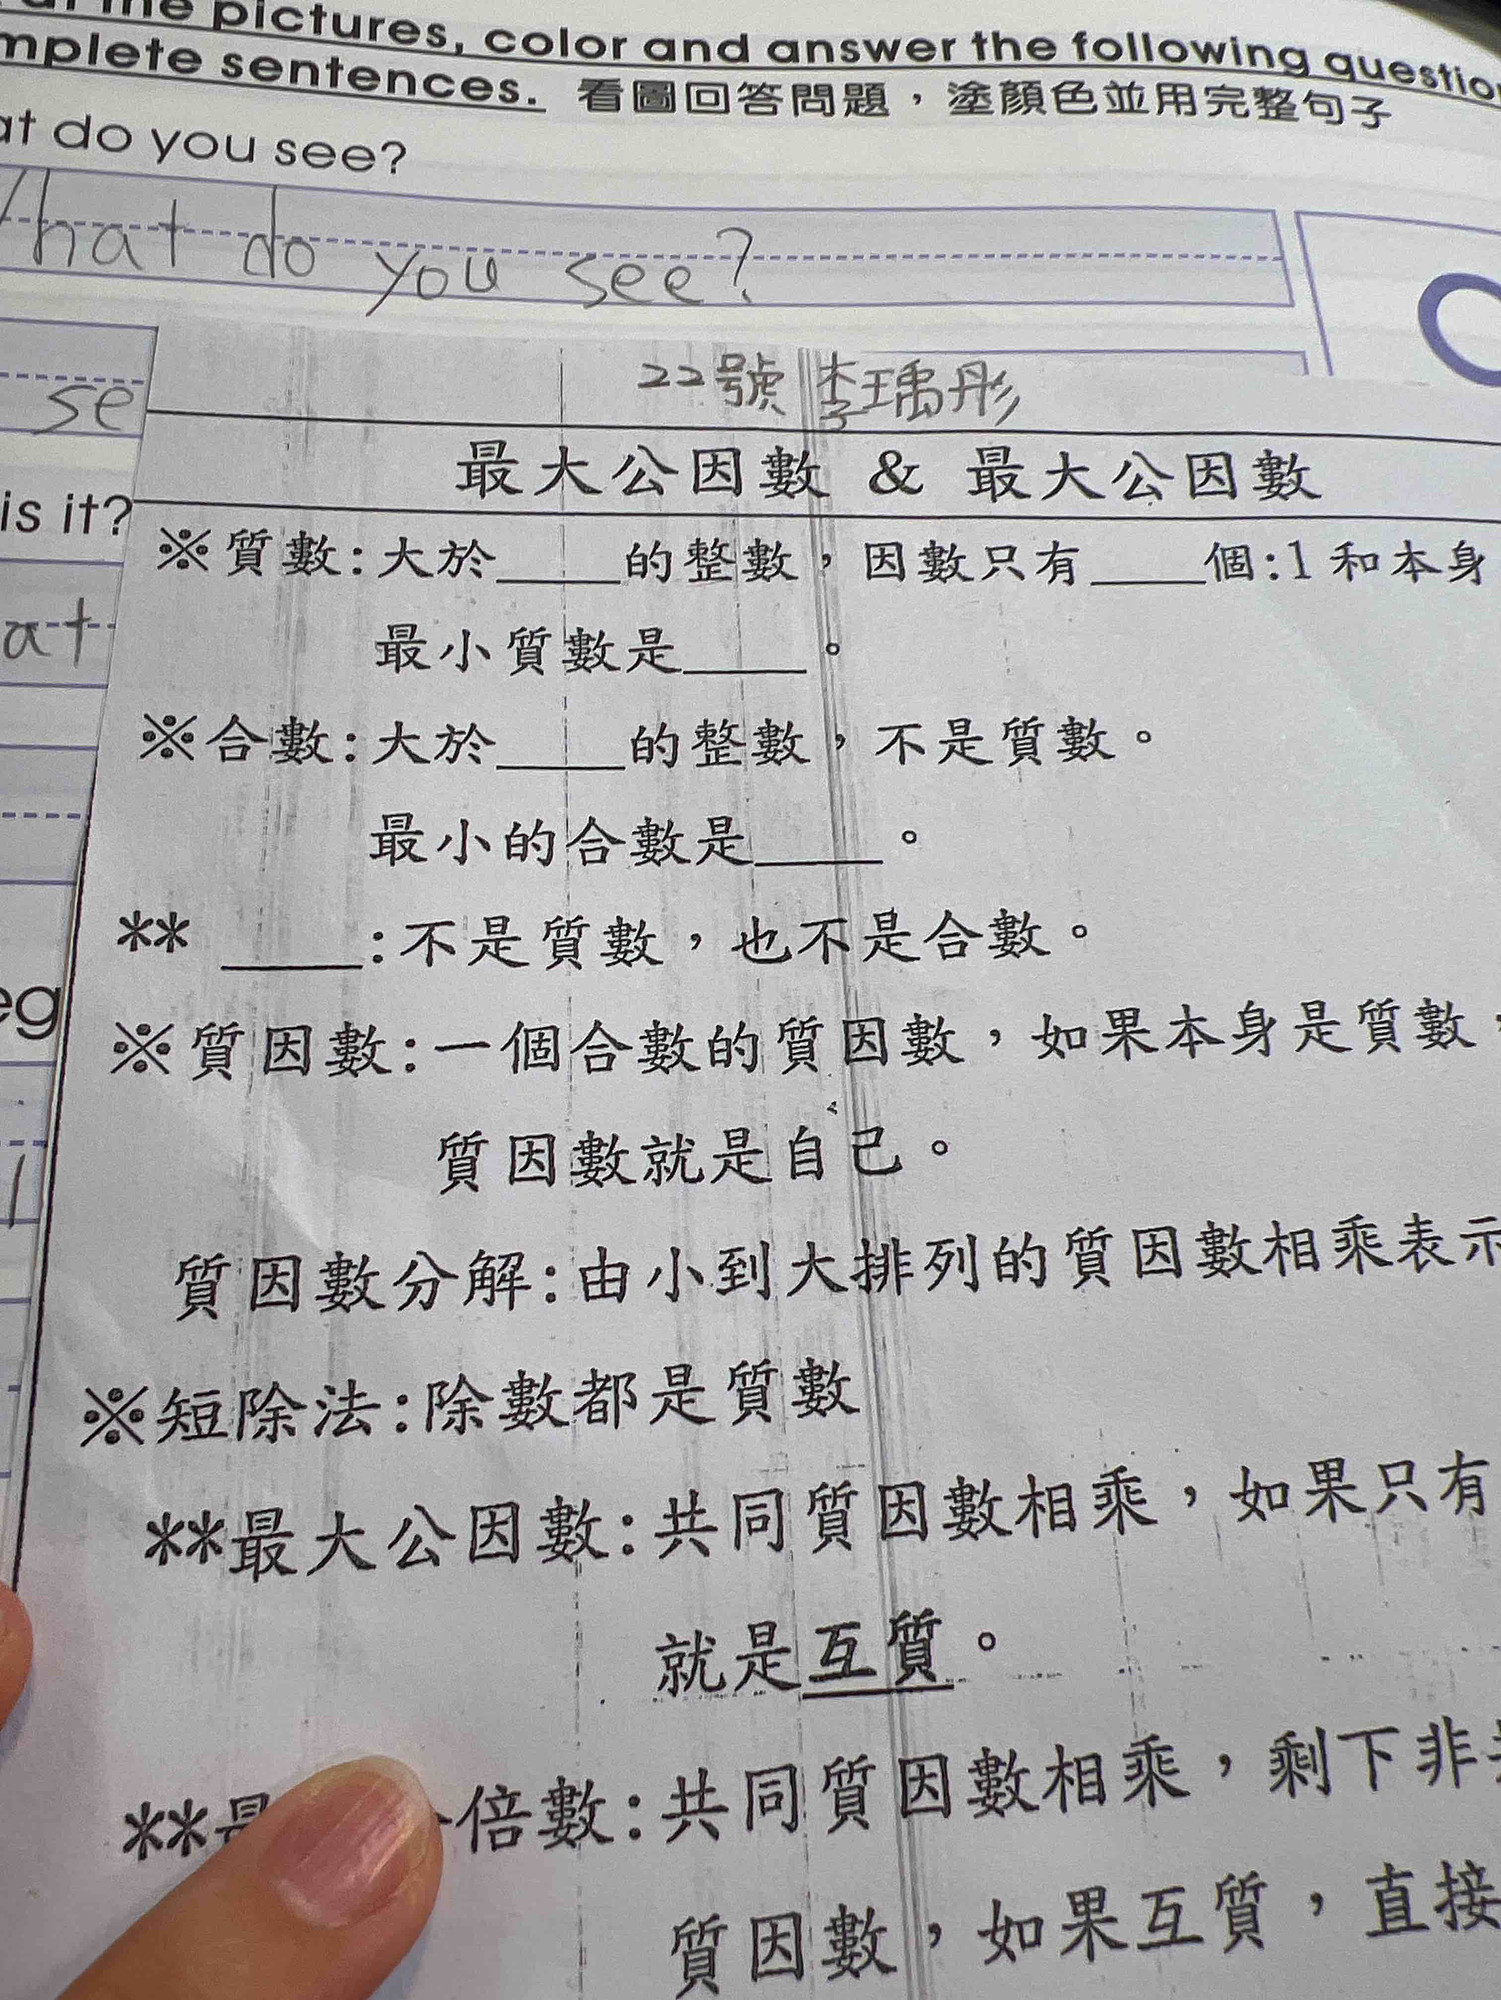 the pictures, color and answer the following
mplete sentences. 看圖回答問題，塗顏色並用完整句子
at do you see?
What do you see?
22號 李瑀彤
se
最大公因數 & 最大公因數
is it?
※質數:大於____的整數，因數只有____個:1和本身
at
最小質數是____。
※合數:大於____的整數，不是質數。
最小的合數是____。
** ____:不是質數，也不是合數。
eg
※質因數:一個合數的質因數，如果本身是質數，
質因數就是自己。
質因數分解:由小到大排列的質因數相乘表示
※短除法:除數都是質數
**最大公因數:共同質因數相乘，如果只有
就是互質。
**最 倍數:共同質因數相乘，剩下非
質因數，如果互質，直接